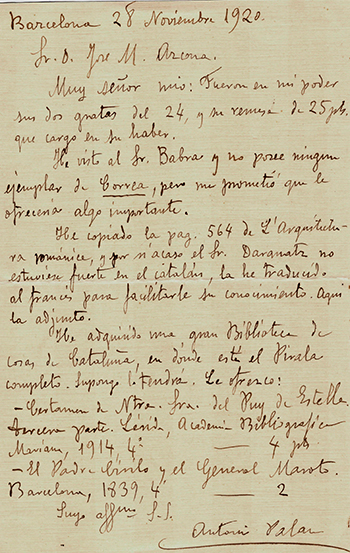 Barcelona 28 Noviembre 1920.
Sr. D. Jose M. Azcona.
Muy señor mio: Fueron en mi poder
sus dos gratas del 24, y su remesa de 25 pts.
que cargo en su haber.
He visto al Sr. Babra y no posee ningun
ejemplar de Correa, pero me prometió que le
ofreceria algo importante.
He copiado la pag. 564 de L'Arquitectu-
ra románica, y por si acaso el Sr. Daranatz no
estuviese fuerte en el catalán, la he traducido
al francés para facilitarle su conocimiento. Aqui
la adjunto.
He adquirido una gran Biblioteca de
cosas de Cataluña, en donde está el Pirala
completo. Supongo l. tendrá. Le ofrezco:
- Certamen de Ntra. Sra. del Puy de Estella.
tercera parte. Lérida, Academia Bibliografica
Mariana, 1914 4º — 4 pts.
- El Padre Cirilo y el General Maroto.
Barcelona, 1839, 4º — 2
Suyo affmo S.S.
Antonio Palau